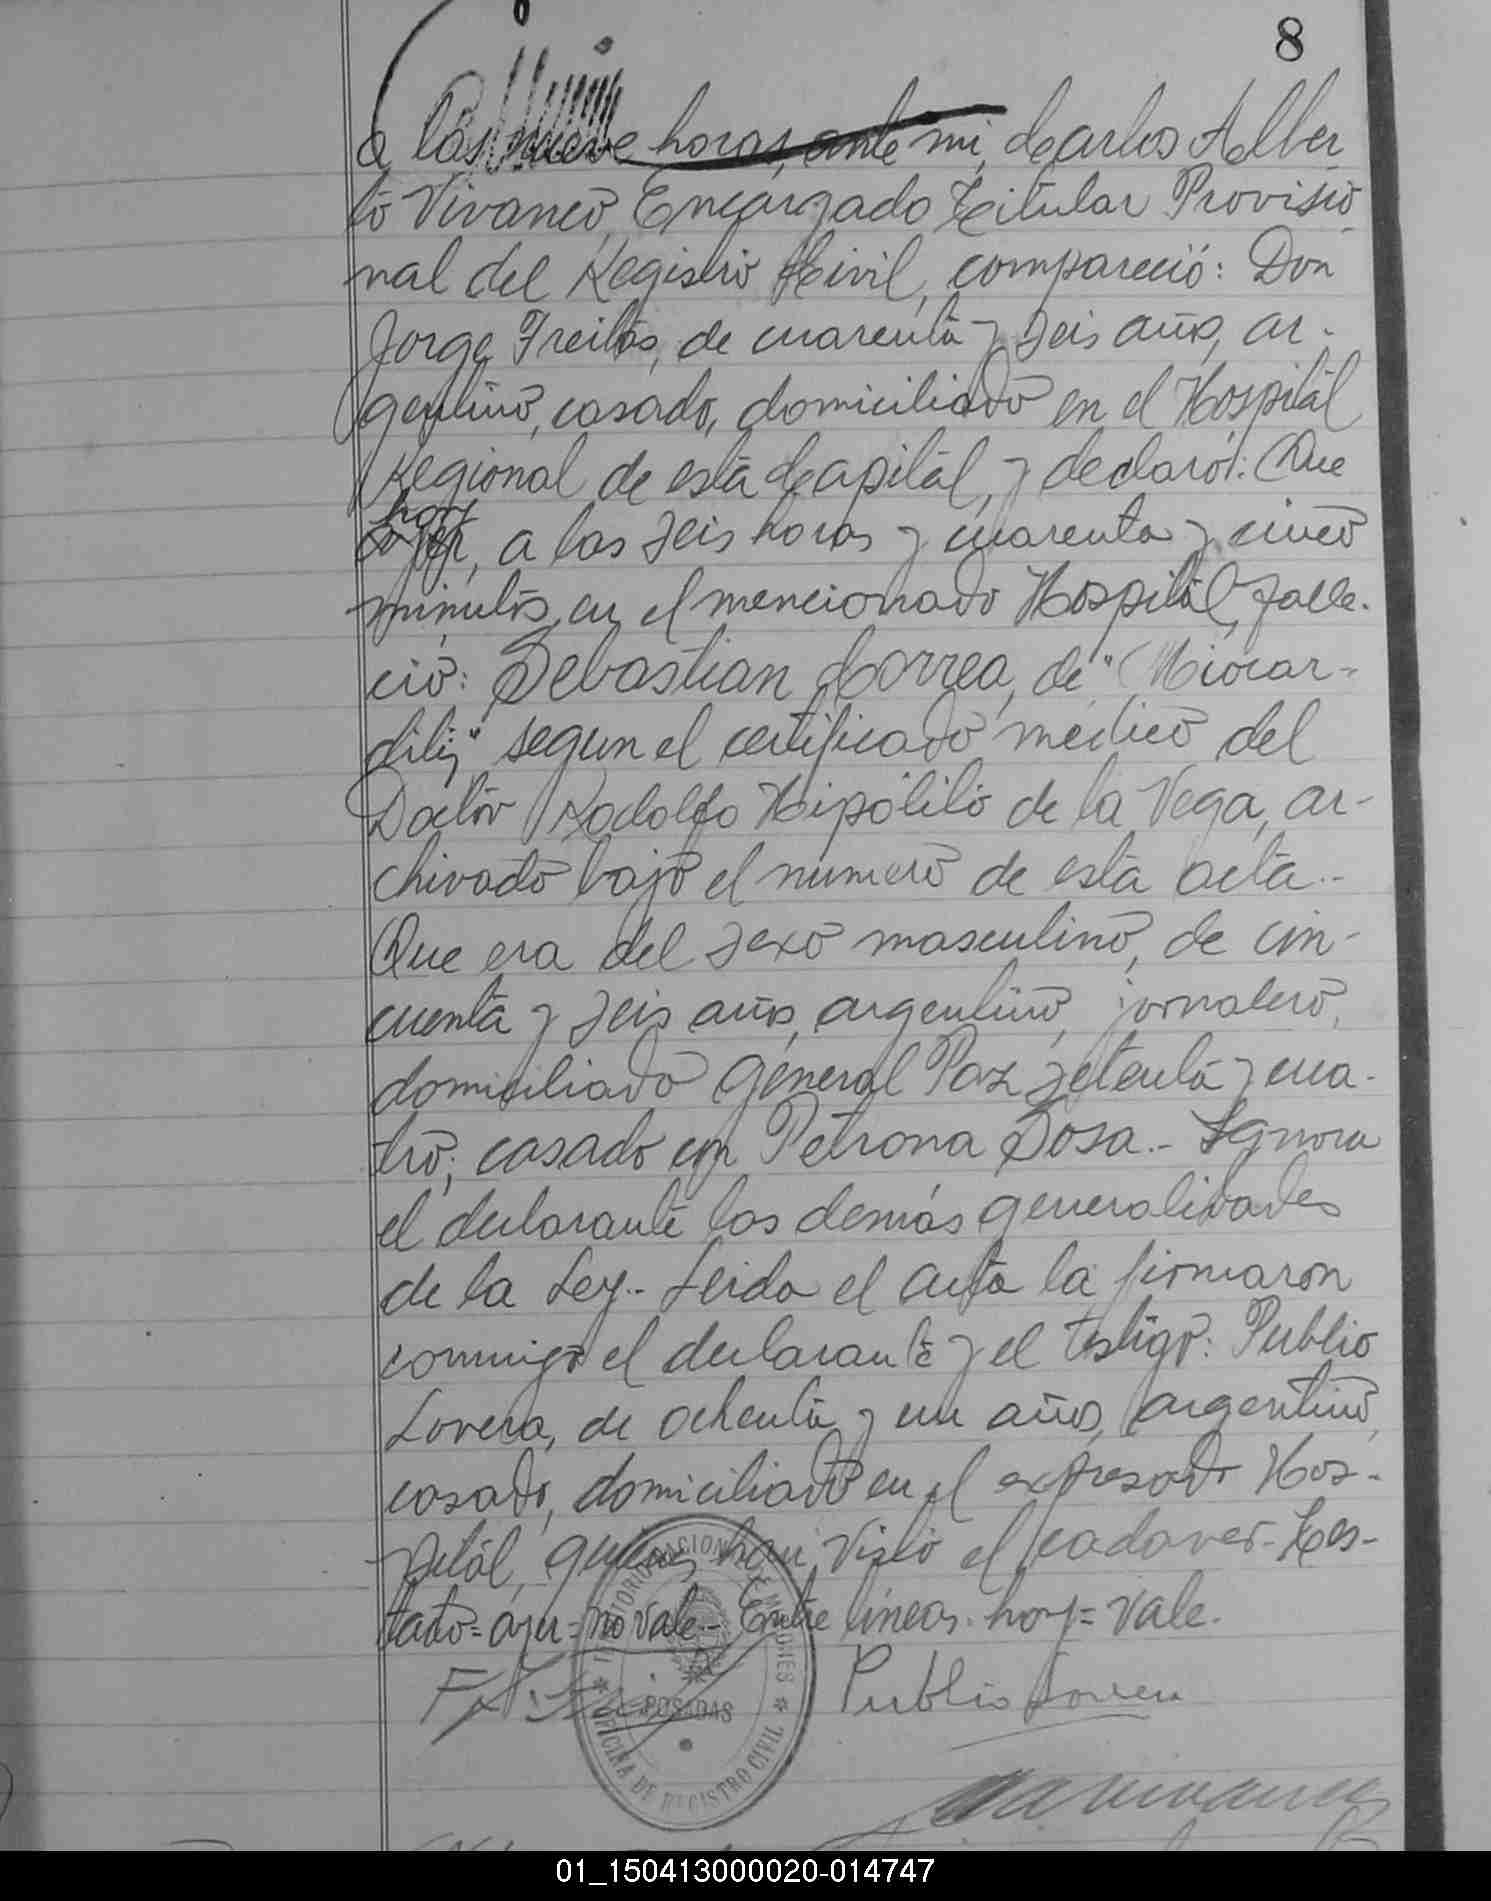 8
a las nueve horas, ante mi, Carlos Alber
to Vivanco, Encargado Titular Provisio
nal del Registro Civil, compareció: Don
Jorge Freitas, de cuarenta y seis años, ar-
gentino, casado, domiciliado en el Hospital
Regional de esta Capital, y declaró: Que
hoy
ayer, a las seis horas y cuarenta y cinco
minutos, en el mencionado Hospital, falle-
ció: Sebastian Correa, de "Miocar-
ditis" segun el certificado médico del
Doctor Rodolfo Hipólito de la Vega, ar-
chivado bajo el número de esta acta.-
Que era del sexo masculino, de cin-
cuenta y seis años, argentino, jornalero,
domiciliado General Paz setenta y cua-
tro, casado con Petrona Sosa.- Ignora
el declarante las demás generalidades
de la Ley.- Leida el acta la firmaron
conmigo el declarante y el testigo: Publio
Lovera, de ochenta y un años, argentino,
casado, domiciliado en el expresado Hos-
pital, quienes han visto el cadaver.- Tes-
tado=ayer=no vale.- Entre lineas. hoy=vale.
Publio Lovera
TERRITORIO NACIONAL DE MISIONES
POSADAS
OFICINA DE REGISTRO CIVIL
01_150413000020-014747